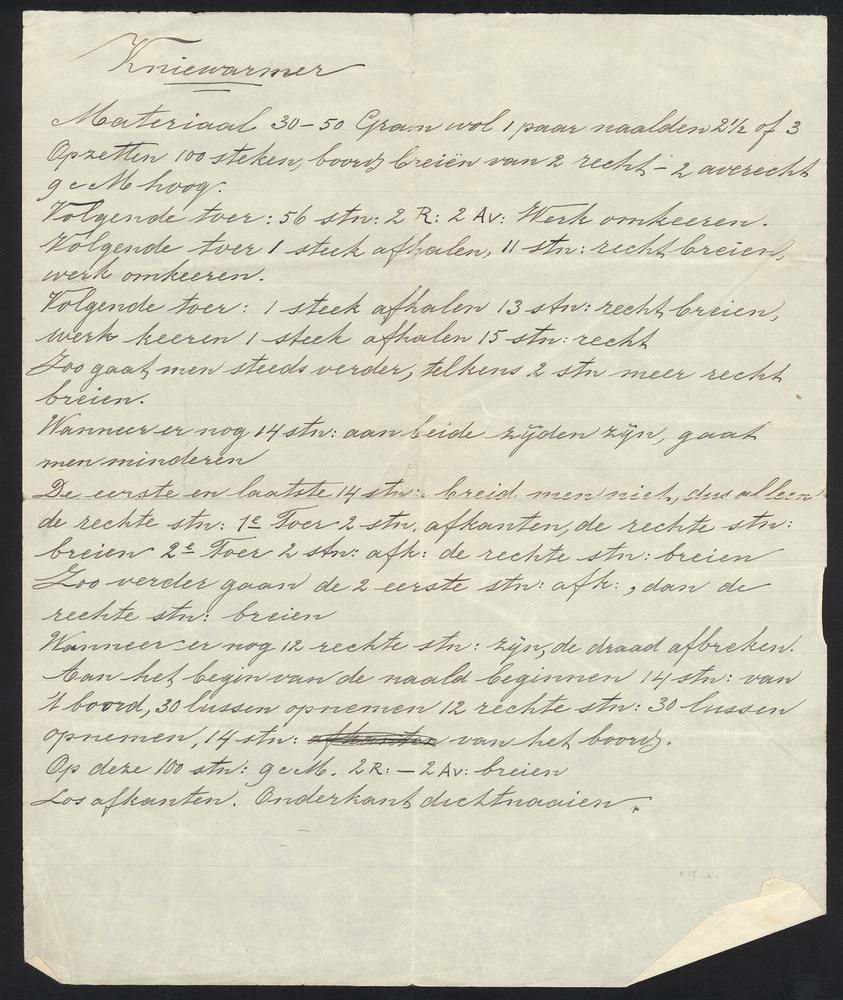 Kniewarmer
Materiaal 30-50 Gram wol 1 paar naalden 2½ of 3
Opzetten 100 steken, boord breiën van 2 recht - 2 averecht
9 c M hoog.
Volgende toer: 56 stn: 2 R: 2 Av: Werk omkeeren.
Volgende toer 1 steek afhalen, 11 stn: recht breien,
werk omkeeren.
Volgende toer: 1 steek afhalen 13 stn: recht breien,
werk keeren 1 steek afhalen 15 stn: recht
Zoo gaat men steeds verder, telkens 2 stn meer recht
breien.
Wanneer er nog 14 stn: aan beide zijden zijn, gaat
men minderen
De eerste en laatste 14 stn: breid men niet, dus alleen
de rechte stn: 1e Toer 2 stn. afkanten, de rechte stn:
breien 2e Toer 2 stn: afk: de rechte stn: breien
Zoo verder gaan de 2 eerste stn: afk:, dan de
rechte stn: breien
Wanneer er nog 12 rechte stn: zijn, de draad afbreken.
Aan het begin van de naald beginnen 14 stn: van
't boord, 30 lussen opnemen 12 rechte stn: 30 lussen
opnemen, 14 stn: afkanten van het boord.
Op deze 100 stn: 9 c M. 2 R: - 2 Av: breien
Los afkanten. Onderkant dichtnaaien.